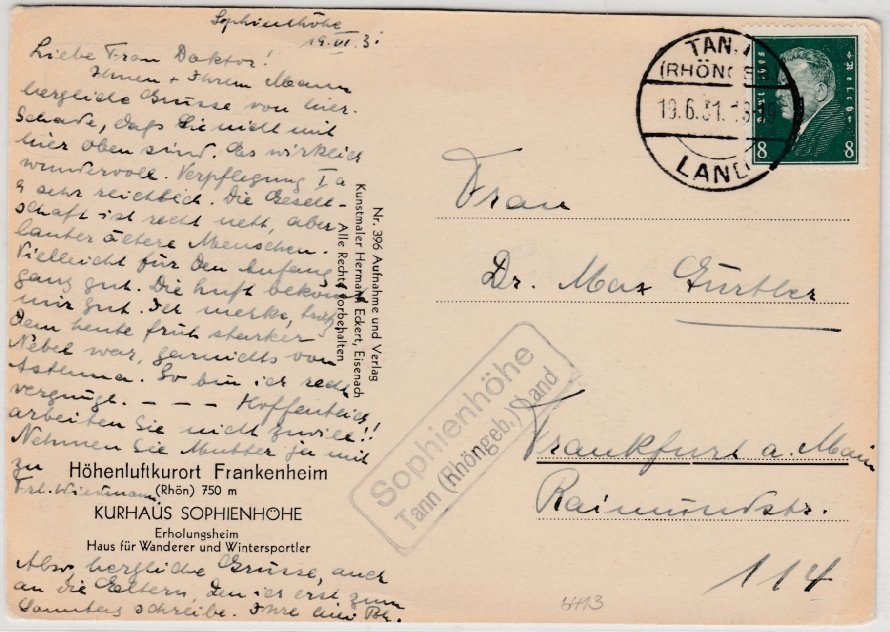 Sophienhöhe
19.VI.31
Liebe Frau Doktor!
Ihnen + Ihrem Mann
herzliche Grüsse von hier.
Schade, daß Sie nicht mit
hier oben sind. Es wirklich
wundervoll. Verpflegung Ia
& sehr reichlich. Die Gesell-
schaft ist recht nett, aber
lauter ältere Menschen.
Vielleicht für den Anfang
ganz gut. Die Luft bekommt
mir gut. Ich merke, trotz
dem heute früh starker
Nebel war, garnichts von
Asthma. So bin ich recht
vergnügt. - - - - Hoffentlich
arbeiten Sie nicht zuviel!!
Nehmen Sie Mutter ja mit
zu
Frl. Wiedmann.
Höhenluftkurort Frankenheim
(Rhön) 750 m
KURHAUS SOPHIENHÖHE
Erholungsheim
Haus für Wanderer und Wintersportler
Also herzliche Grüsse, auch
an die Eltern, den ich erst zum
Sonntag schreibe. Ihre
Nr. 396 Aufnahme und Verlag
Kunstmaler Hermann Eckert, Eisenach
Alle Rechte vorbehalten
TANN
(RHÖNGEB
19.6.31.
LAND
8 8
Frau
Dr. Max Gürtler
Sophienhöhe
Tann (Rhöngeb.) Land
Frankfurt a. Main
Raimundstr.
114
4413